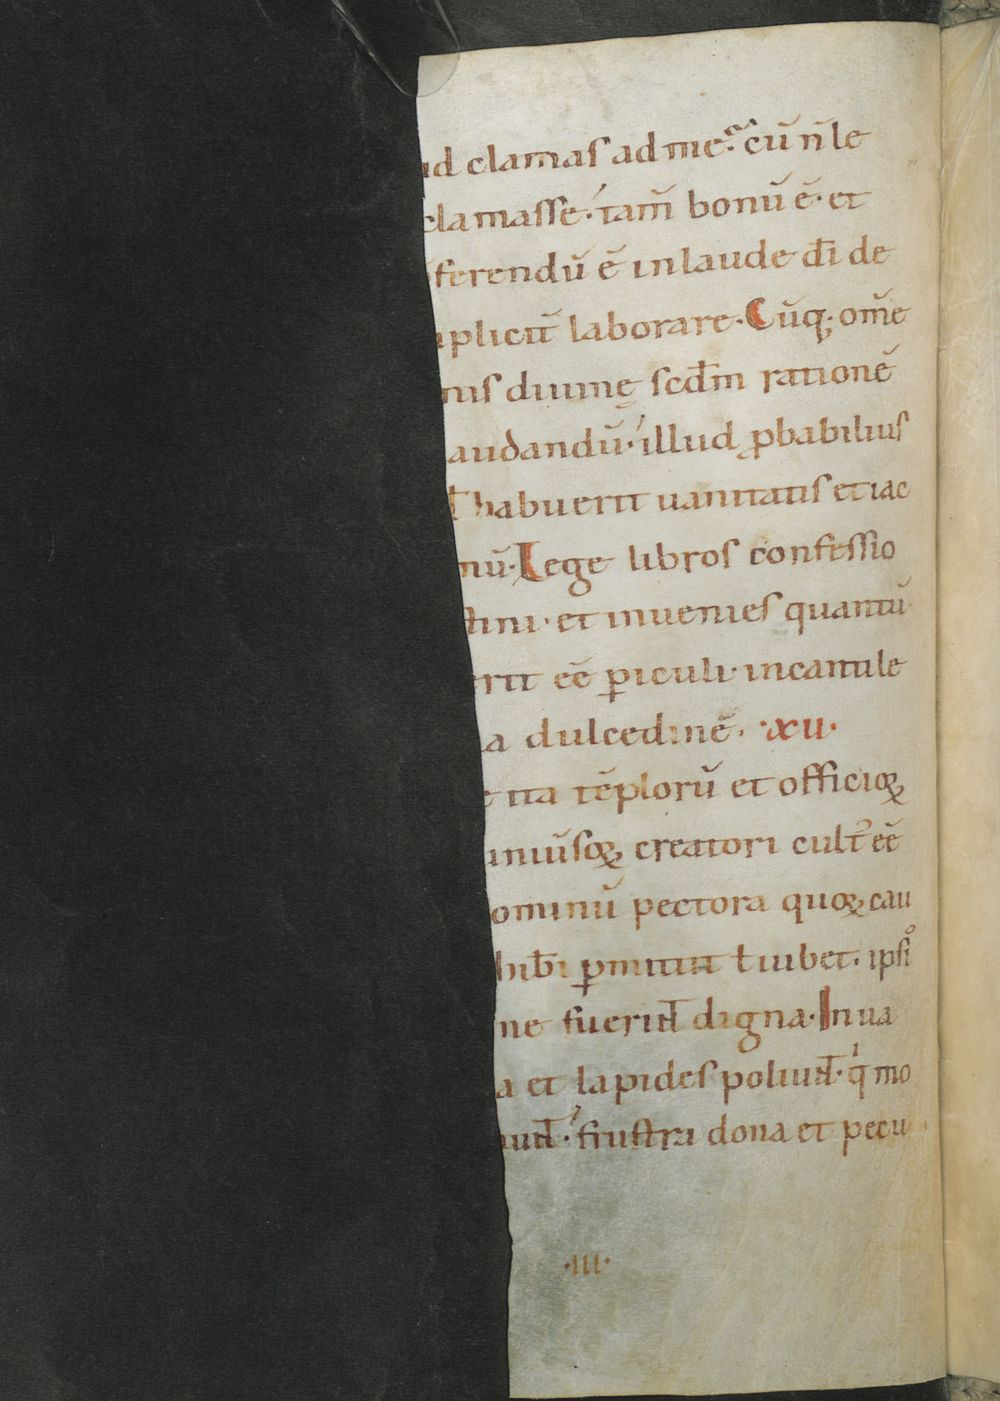 id clamas ad me? cū n̄ le
clamasse· tam̄ bonū ē· et
ferendū ē in laude dī de
plicit̄ laborare· Cūq; om̄e
nis diuinę scdm̄ rationē
audandū· illud ꝓbabilius
habuerit uanitatis et iac
nū· Lege libros confessio
stini· et inuenies quantū
rit eē ꝑiculi· in cantile
a dulcedinē· ·xu·
ita tēplorū et officioꝝ
niūsoꝝ creatori cult᷒ eē
ominū pectora quoꝝ cau
hib̄i ꝑmittit ł iubet· ipsi᷒
ne fuerint̄ digna· In ua
a et lapides poliunt̄· qͥ mo
unt̄· frustra dona et pecu
·III·